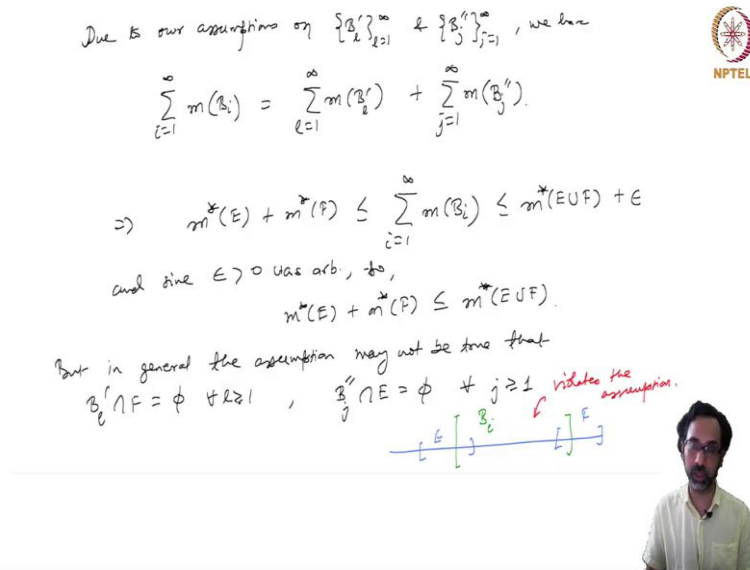 Due to our assumptions on {B_l'}_{l=1}^∞ & {B_j''}_{j=1}^∞, we have
∑_{i=1}^∞ m(B_i) = ∑_{l=1}^∞ m(B_l') + ∑_{j=1}^∞ m(B_j'').
⇒ m*(E) + m*(F) ≤ ∑_{i=1}^∞ m(B_i) ≤ m*(E∪F) + ε
and sine ε>0 was arb., so,
m*(E) + m*(F) ≤ m*(E∪F).
But in general the assumption may not be true that
B_l' ∩ F = φ ∀ l≥1, B_j'' ∩ E = φ ∀ j≥1
violates the assumption.
E B_i F
NPTEL